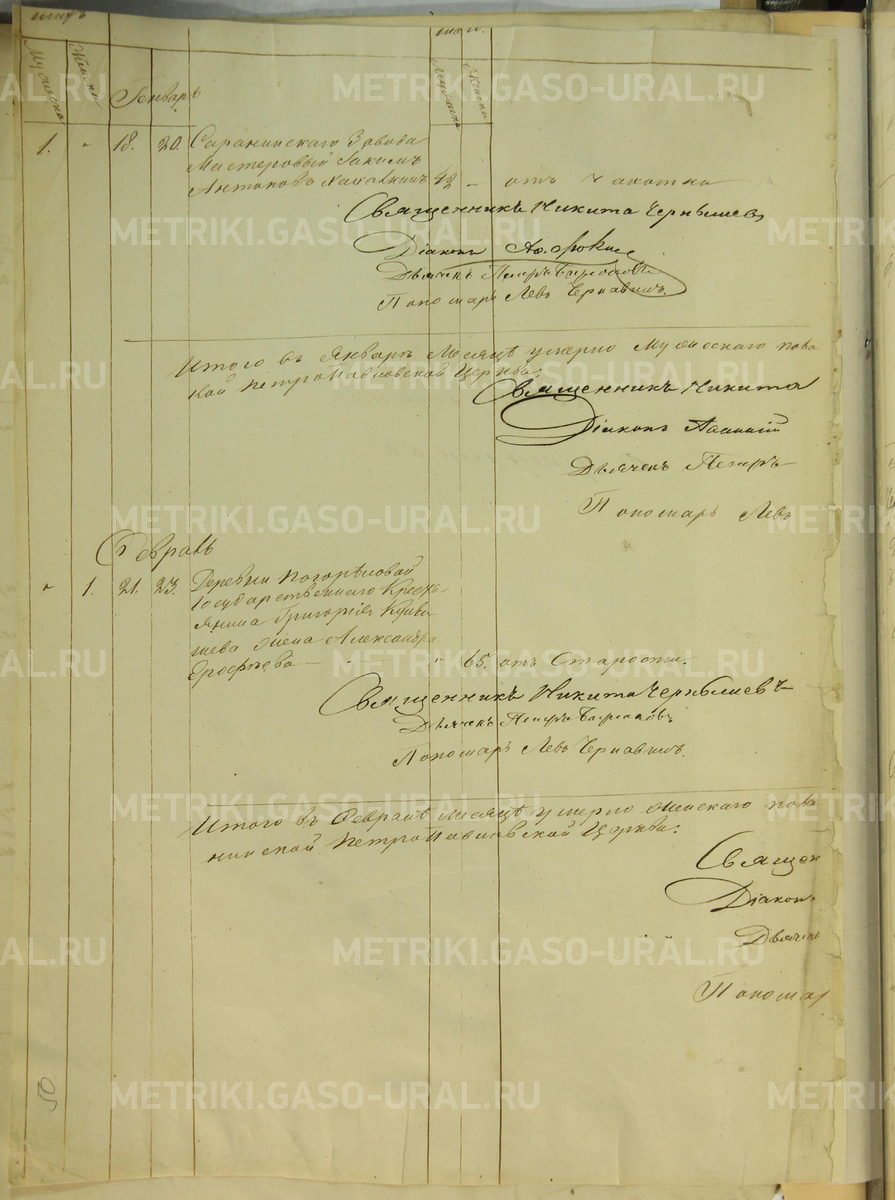 Мужеска
Женска
Генварь
1.
18.
20.
Саранинскаго Завода
Мастеровый Iакимъ
Антоновъ
42
отъ чахотки
Священникъ Никита Чернышев
Дiаконъ
Дьячекъ Петръ
Пономарь Левъ Чернавинъ.
Итого въ Январѣ Месяцѣ умерло Мужескаго пола
Петропавловской Церкви:
Священникъ Никита
Дiаконъ
Дьячекъ Петръ
Пономарь Левъ
Февраль
1.
21.
23.
Деревни Погорѣловой
Государственнаго Кресть-
янина Григорiя
жена Александра
Ерофѣева
65.
отъ Старости.
Священникъ Никита Чернышевъ
Дьячекъ Петръ
Пономарь Левъ Чернавинъ.
Итого въ Февралѣ месяцѣ умерло женскаго пола
нинской Петропавловской Церкви:
Священ
Дiакон
Дьячекъ
Пономар
METRIKI.GASO-URAL.RU